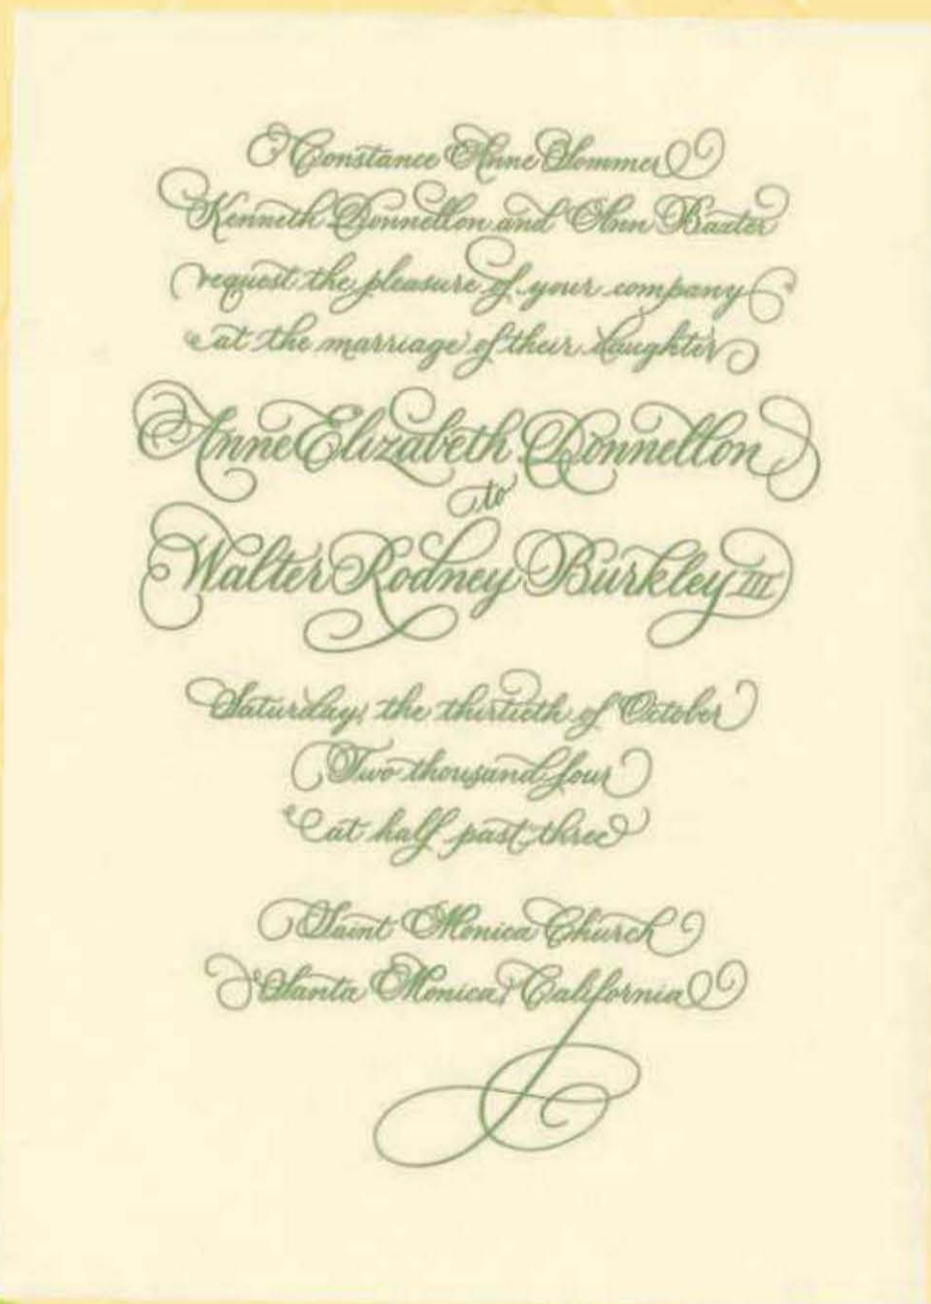 Constance Anne Sommer
Kenneth Donnellon and Ann Baxter
request the pleasure of your company
at the marriage of their daughter
Anne Elizabeth Donnellon
to
Walter Rodney Burkley III
Saturday, the thirtieth of October
Two thousand four
at half past three
Saint Monica Church
Santa Monica, California